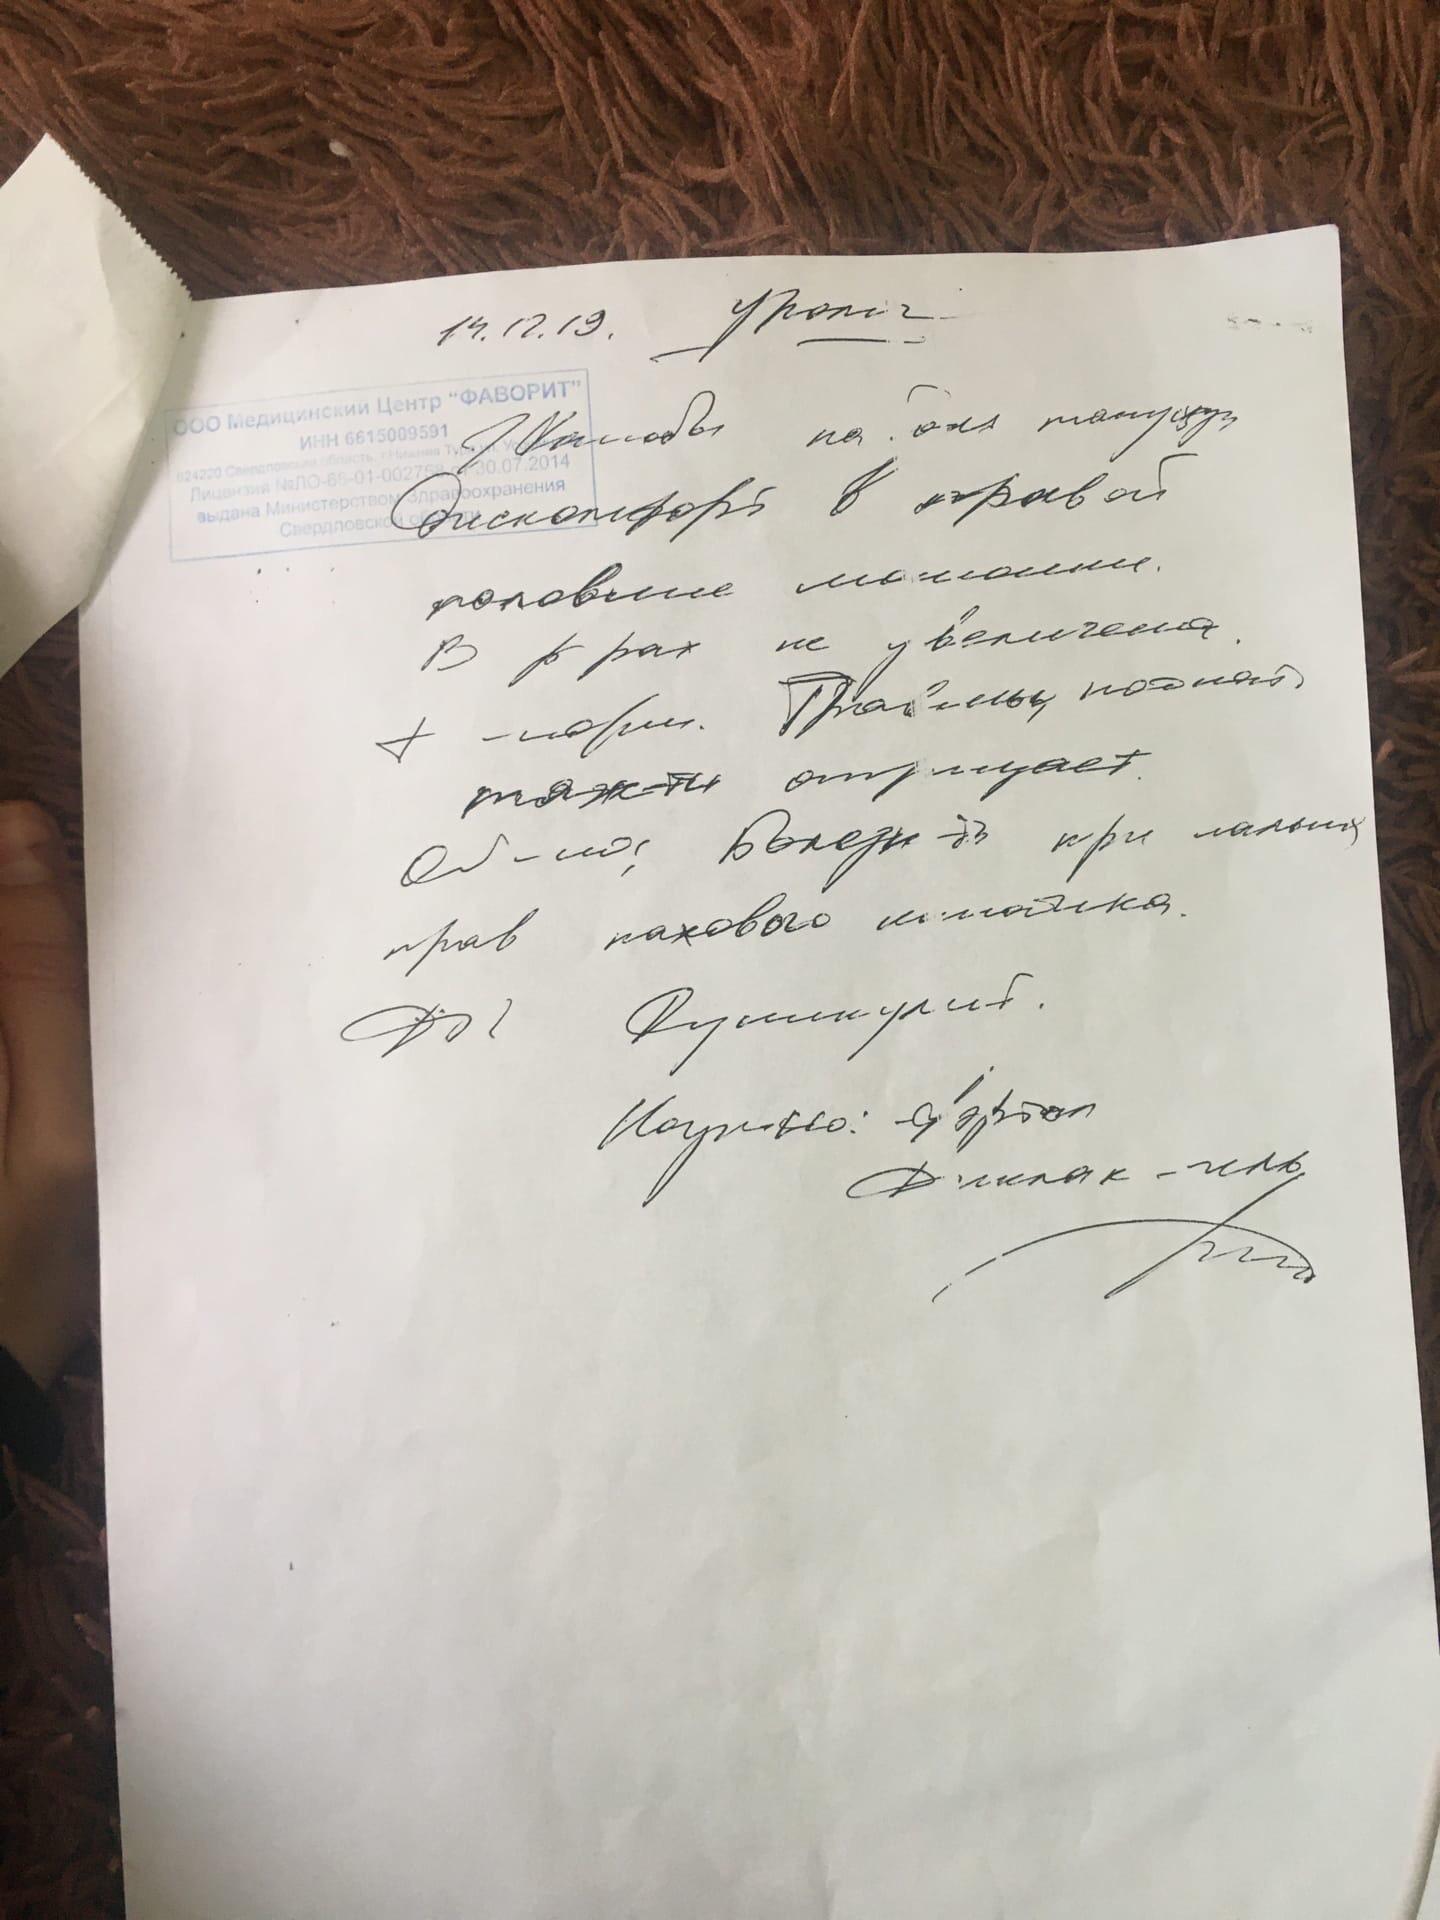 14.12.19. Уролог
ООО Медицинский Центр "ФАВОРИТ"
ИНН 6615009591
624220 Свердловская область, г.Нижняя Тура, ул.
Лицензия №ЛО-66-01-002758 от 30.07.2014
выдана Министерством Здравоохранения
Свердловской области
Жалобы на боль тянущую
Дискомфорт в правой
половине мошонки.
В р рах не увеличена.
t - норм. Травмы, поднят
тяж-ти отрицает.
Об-но: Болезн-ть при пальпац
прав пахового канатика.
DS: Фуникулит.
Назначено: